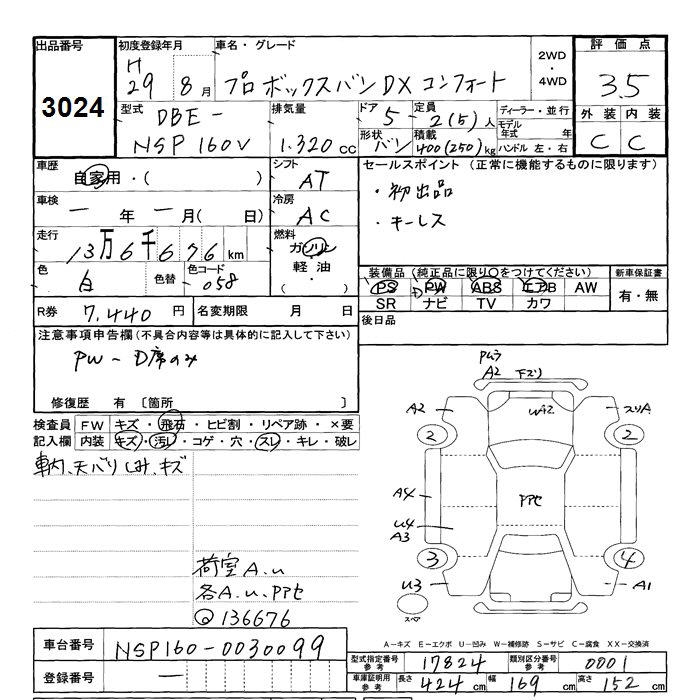 出品番号 初度登録年月 車名・グレード 2WD・4WD 評価点
3024 H29 8月 プロボックスバンDXコンフォート 3.5
型式 DBE-NSP160V 排気量 1.320cc ドア 5 定員 2(5)人 ディーラー・並行 外装 内装
形状 バン 積載 400(250)kg モデル年式 年 ハンドル 左・右 C C
車歴 自家用・( ) シフト AT セールスポイント (正常に機能するものに限ります)
・初出品
・キーレス
車検 ー年 ー月( 日) 冷房 AC
走行 13万6千676km 燃料 ガソリン 軽油・( )
色 白 色替 色コード 058 装備品 (純正品に限り○をつけてください) 新車保証書
PS PW ABS エアB AW 有・無
SR ナビ TV カワ
R券 7,440円 名変期限 月 日 後日品
注意事項申告欄(不具合内容等は具体的に記入して下さい)
PW-D席のみ
修復歴 有 〔箇所 〕
検査員記入欄 FW キズ・飛石・ヒビ割・リペア跡・×要
内装 キズ・汚レ・コゲ・穴・スレ・キレ・破レ
車内、天バリしみ、キズ
荷室A.u
各A.u.PPセ
Q 136676
PムラA2 下ズリ
A2 WA2 スリA
2 2
A4 PPセ
U4
A3
3 4
U3 A1
スペア
A-キズ E-エクボ U-凹み W-補修跡 S-サビ C-腐食 XX-交換済
車台番号 NSP160-0030099
型式指定番号 参考 17824 類別区分番号 参考 0001
登録番号 ー
車庫証明用 参考 長さ 424cm 幅 169cm 高さ 152cm